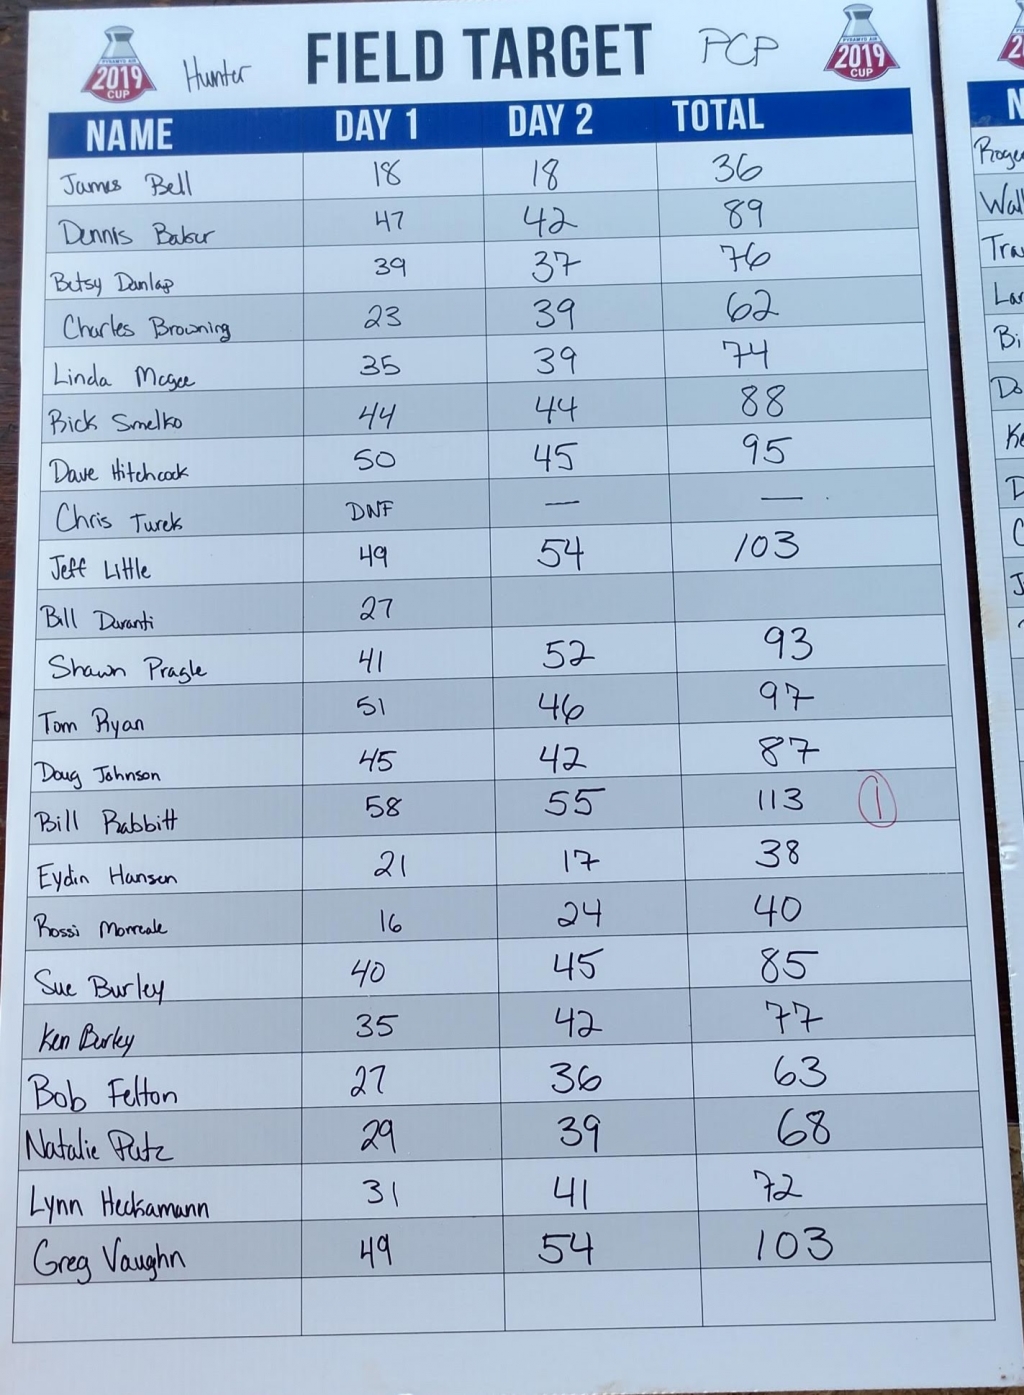 PYRAMYD AIR 2019 CUP Hunter FIELD TARGET PCP PYRAMYD AIR 2019 CUP
NAME DAY 1 DAY 2 TOTAL
James Bell 18 18 36
Dennis Baker 47 42 89
Betsy Dunlap 39 37 76
Charles Browning 23 39 62
Linda Mcgee 35 39 74
Rick Smelko 44 44 88
Dave Hitchcock 50 45 95
Chris Turek DNF — —
Jeff Little 49 54 103
Bill Duranti 27
Shawn Pragle 41 52 93
Tom Ryan 51 46 97
Doug Johnson 45 42 87
Bill Rabbitt 58 55 113 1
Eydin Hansen 21 17 38
Rossi Morreale 16 24 40
Sue Burley 40 45 85
Ken Burley 35 42 77
Bob Felton 27 36 63
Natalie Putz 29 39 68
Lynn Heckamann 31 41 72
Greg Vaughn 49 54 103